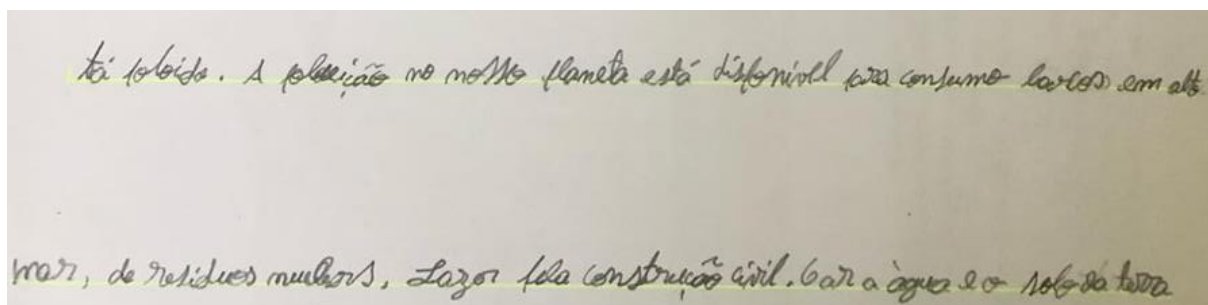 tá poloido. A poluição no nosso planeta está disponivel para consumo barcos em alto
mar, de residuos nuclears, Lazor pela construção civil. Gar a àgua e o solo da terra